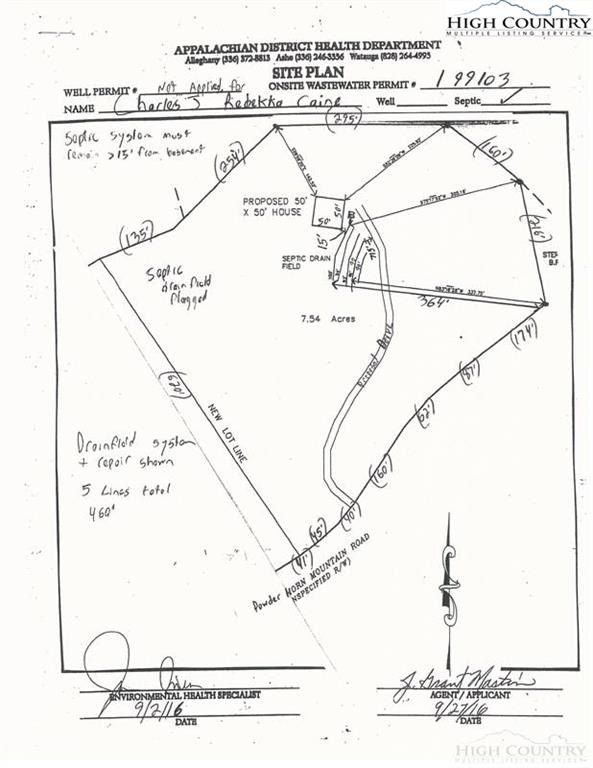 HIGH COUNTRY
MULTIPLE LISTING SERVICE
APPALACHIAN DISTRICT HEALTH DEPARTMENT
Alleghany (336) 372-8813 Ashe (336) 246-3356 Watauga (828) 264-4995
SITE PLAN
WELL PERMIT # Not Applied for ONSITE WASTEWATER PERMIT # 199103
NAME Charles J Rebekka Caine Well Septic ✓
Septic system must
remain >15' from basement
(295')
(254')
(150')
(135')
(216')
PROPOSED 50'
X 50' HOUSE
50'
50'
15'
SEPTIC DRAIN
FIELD
Septic
drain field
flagged
364'
7.54 Acres
(174')
(87')
(620')
NEW LOT LINE
(62')
Drainfield system
+ repair shown
5 Lines total
460'
(160')
(40')
(45')
(41')
Powder HORN MOUNTAIN ROAD
ENVIRONMENTAL HEALTH SPECIALIST
9/2/16
DATE
J. Grant Mastin
AGENT / APPLICANT
9/27/16
DATE
HIGH COUNTRY
MULTIPLE LISTING SERVICE